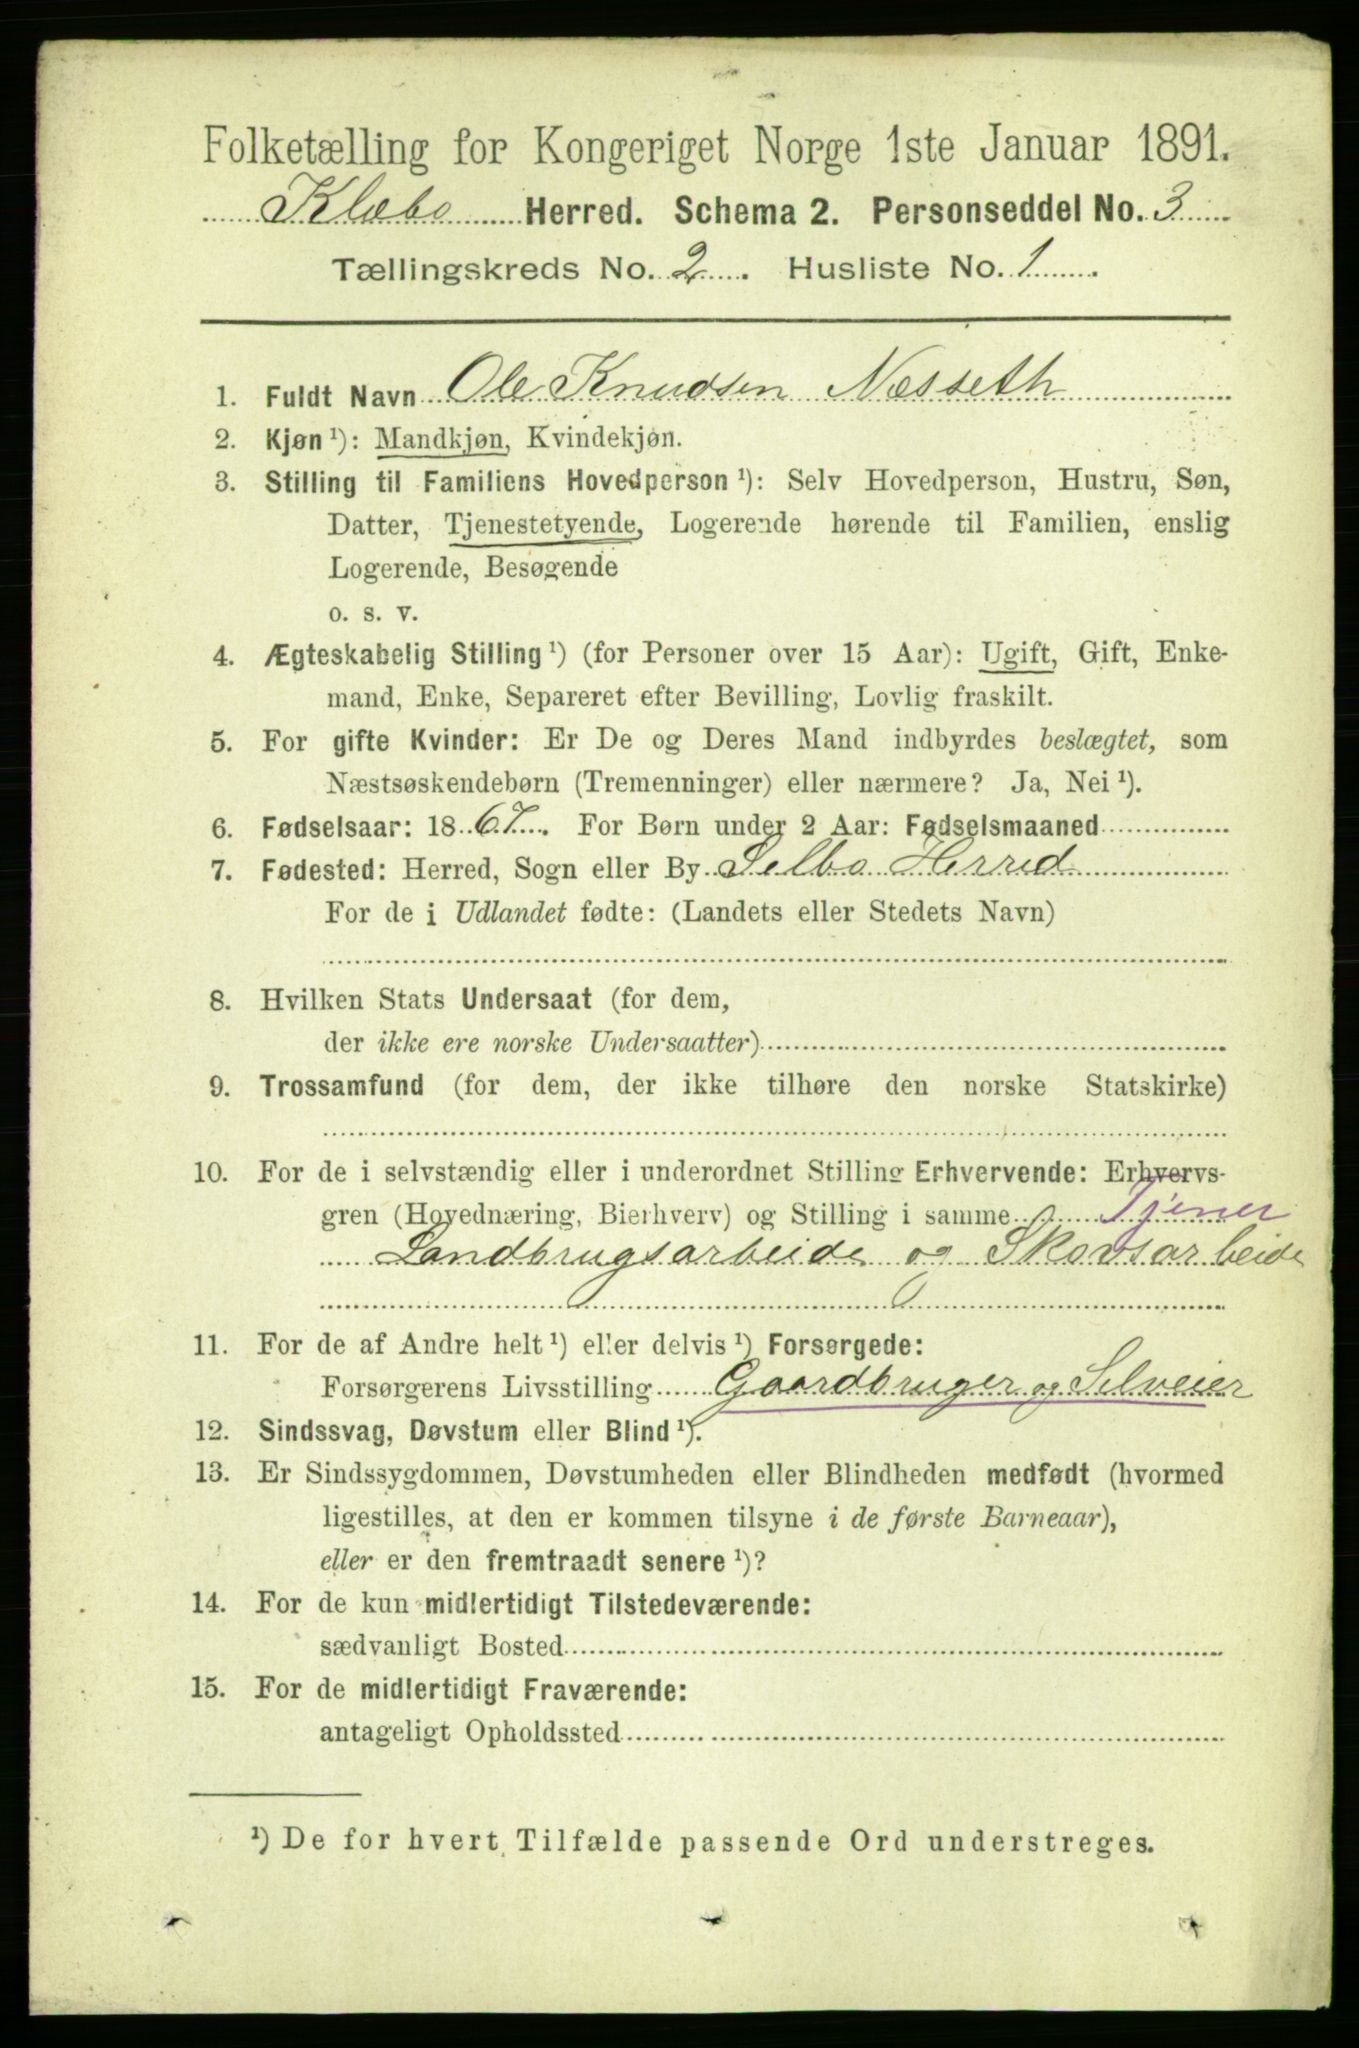 Folketælling for Kongeriget Norge 1ste Januar 1891.
Klæbo Herred. Schema 2. Personseddel No. 3
Tællingskreds No. 2. Husliste No. 1.
1. Fuldt Navn Ole Knudsen Næsseth
2. Kjøn ¹): Mandkjøn, Kvindekjøn.
3. Stilling til Familiens Hovedperson ¹): Selv Hovedperson, Hustru, Søn,
Datter, Tjenestetyende, Logerende hørende til Familien, enslig
Logerende, Besøgende
o. s. v.
4. Ægteskabelig Stilling ¹) (for Personer over 15 Aar): Ugift, Gift, Enke-
mand, Enke, Separeret efter Bevilling, Lovlig fraskilt.
5. For gifte Kvinder: Er De og Deres Mand indbyrdes beslægtet, som
Næstsøskendebørn (Tremenninger) eller nærmere? Ja, Nei ¹).
6. Fødselsaar: 1867. For Børn under 2 Aar: Fødselsmaaned
7. Fødested: Herred, Sogn eller By Selbo Herred
For de i Udlandet fødte: (Landets eller Stedets Navn)
8. Hvilken Stats Undersaat (for dem,
der ikke ere norske Undersaatter)
9. Trossamfund (for dem, der ikke tilhøre den norske Statskirke)
10. For de i selvstændig eller i underordnet Stilling Erhvervende: Erhvervs-
gren (Hovednæring, Bierhverv) og Stilling i samme Tjener
Landbrugsarbeide og Skovsarbeide
11. For de af Andre helt ¹) eller delvis ¹) Forsørgede:
Forsørgerens Livsstilling Gaardbruger og Selveier
12. Sindssvag, Døvstum eller Blind ¹).
13. Er Sindssygdommen, Døvstumheden eller Blindheden medfødt (hvormed
ligestilles, at den er kommen tilsyne i de første Barneaar),
eller er den fremtraadt senere ¹)?
14. For de kun midlertidigt Tilstedeværende:
sædvanligt Bosted
15. For de midlertidigt Fraværende:
antageligt Opholdssted
¹) De for hvert Tilfælde passende Ord understreges.